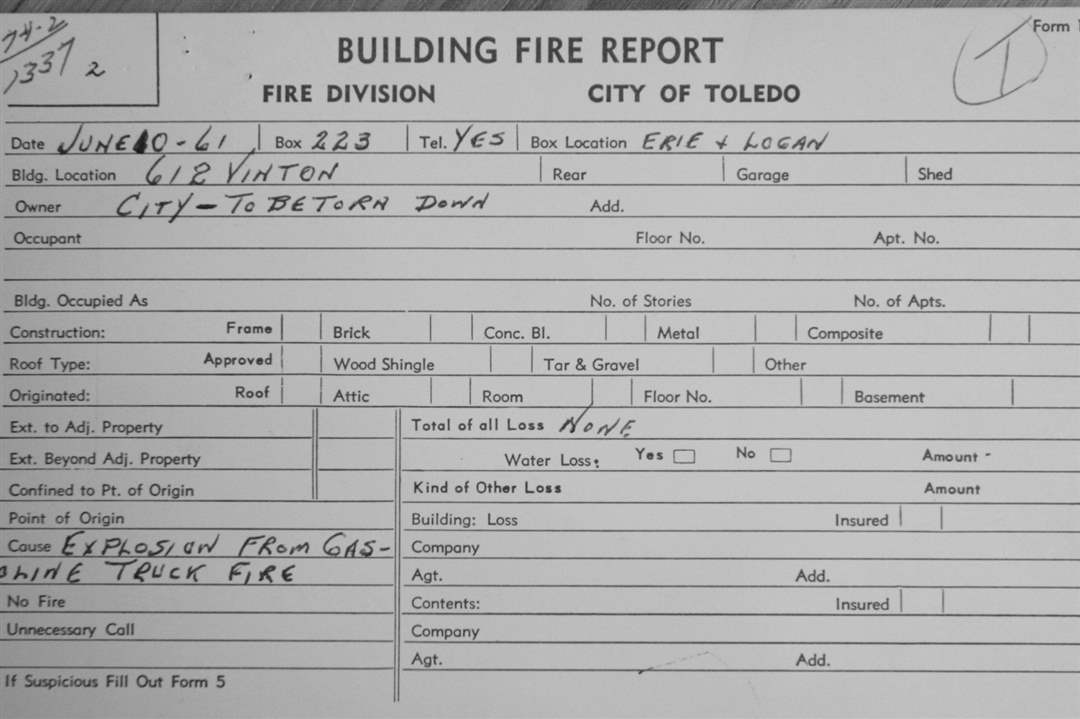 74-2
1337 2
Form
BUILDING FIRE REPORT
I
FIRE DIVISION CITY OF TOLEDO
Date JUNE 10-61 Box 223 Tel. YES Box Location ERIE + LOGAN
Bldg. Location 618 VINTON Rear Garage Shed
Owner CITY - TO BE TORN DOWN Add.
Occupant Floor No. Apt. No.
Bldg. Occupied As No. of Stories No. of Apts.
Construction: Frame Brick Conc. Bl. Metal Composite
Roof Type: Approved Wood Shingle Tar & Gravel Other
Originated: Roof Attic Room Floor No. Basement
Ext. to Adj. Property Total of all Loss NONE
Ext. Beyond Adj. Property Water Loss: Yes No Amount -
Confined to Pt. of Origin Kind of Other Loss Amount
Point of Origin Building: Loss Insured
Cause EXPLOSION FROM GAS- Company
OLINE TRUCK FIRE Agt. Add.
No Fire Contents: Insured
Unnecessary Call Company
Agt. Add.
If Suspicious Fill Out Form 5